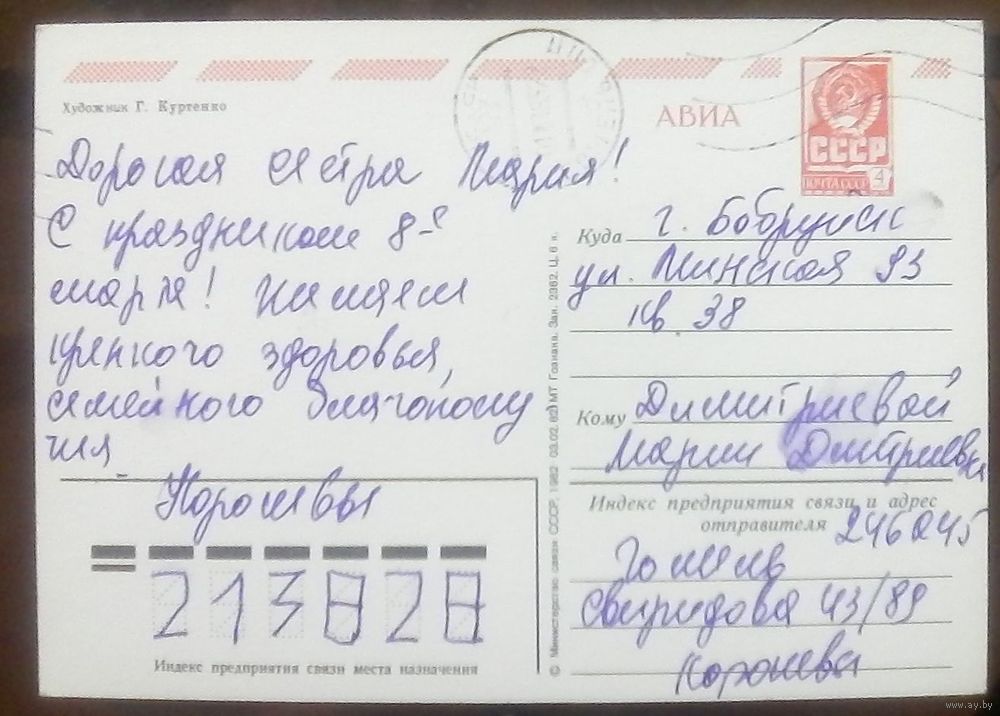 Художник Г. Куртенко
АВИА
СССР
ПОЧТА СССР 4
Дорогая сестра Мария!
С праздником 8-е
марта! Желаем
крепкого здоровья,
семейного благополу
чия
Корошевы
213828
Индекс предприятия связи места назначения
© Министерство связи СССР, 1982 03.02.82 МТ Гознака. Зак. 2362. Ц. 6 к.
Куда г. Бобруйск
ул. Минская 93
кв. 38
Кому Димитриевой
Марии Дмитриевн
Индекс предприятия связи и адрес
отправителя 246045
Гомель
Свиридова 43/89
www.ay.by